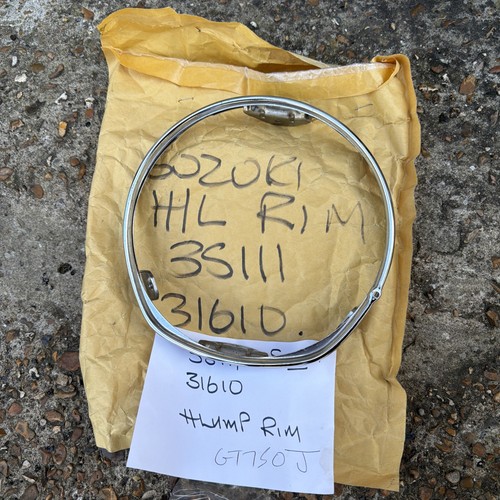 SUZUKI
H/L RIM
35111
31610.
31610
H/LUMP RIM
GT750J